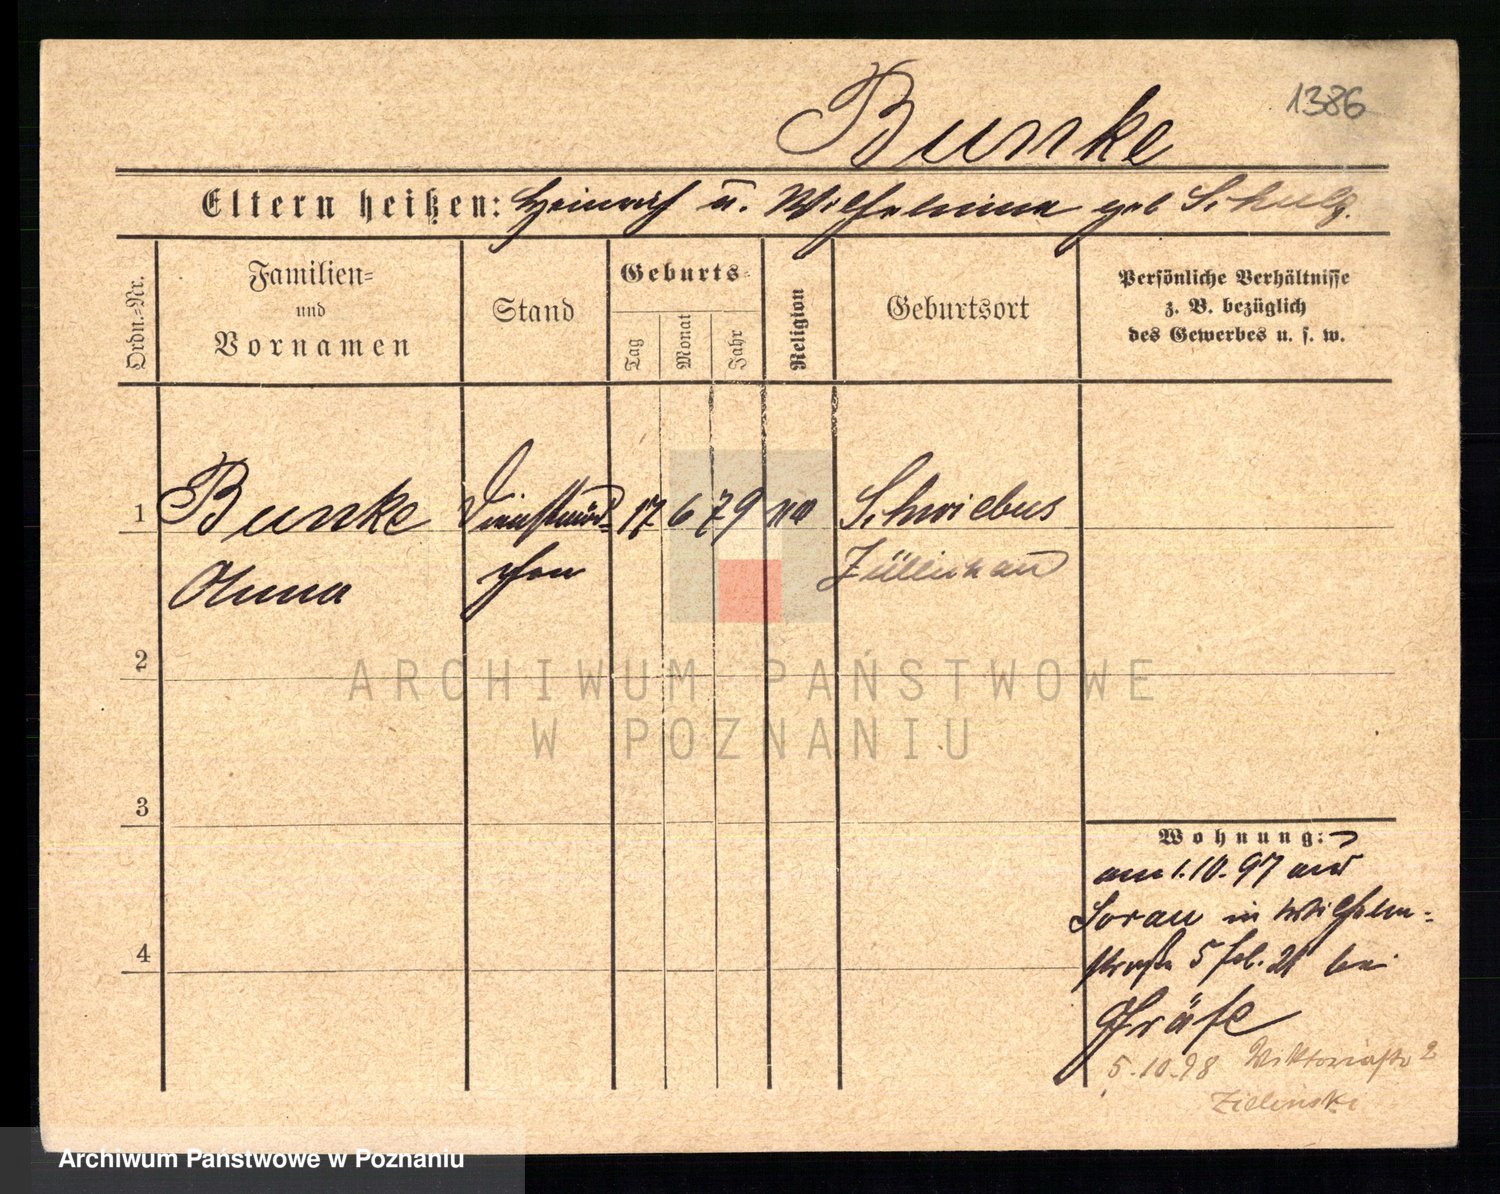 1386
Bunke
Eltern heißen: Heinrich u. Wilhelmine geb Schulz.
Ordn.=Nr.
Familien=
und
Vornamen
Stand
Geburts=
Tag
Monat
Jahr
Religion
Geburtsort
Persönliche Verhältnisse
z. B. bezüglich
des Gewerbes u. s. w.
1 Bunke Dienstmäd= 17 6 79 Schwiebus
Anna chen Züllichau
2
ARCHIWUM PAŃSTWOWE
W POZNANIU
3
Wohnung:
am 1.10.97 aus
Sorau in Wilhelm=
straße 5 bei
Gräfe
5.10.98 Viktoriastr 2
Zielinski
4
Archiwum Państwowe w Poznaniu